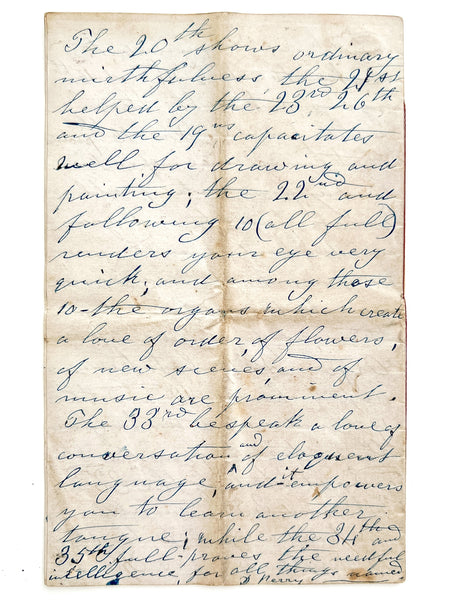 The 20th shows ordinary
mirthfulness, the 21st
helped by the 23rd, 26th
and the 19th capacitates
well, for drawing and
painting; the 22nd and
following 10 (all full)
renders your eye very
quick; and among these
10 - the organs which create
a love of order, of flowers,
of new scenes, and of
music are prominent.
The 33rd bespeak a love of
conversation and of eloquent
language, and it empowers
you to learn another
tongue; while the 34th and
35th full proves the needful
intelligence, for all things named
D Merry